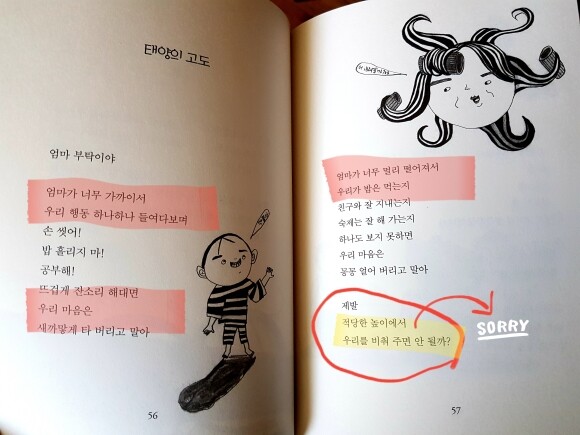 태양의 고도
엄마 부탁이야
엄마가 너무 가까이서
우리 행동 하나하나 들여다보며
손 씻어!
밥 흘리지 마!
공부해!
뜨겁게 잔소리 해대면
우리 마음은
새까맣게 타 버리고 말아
56
엄마가 너무 멀리 떨어져서
우리가 밥은 먹는지
친구와 잘 지내는지
숙제는 잘 해 가는지
하나도 보지 못하면
우리 마음은
꽁꽁 얼어 버리고 말아
제발
적당한 높이에서
우리를 비춰 주면 안 될까?
SORRY
57